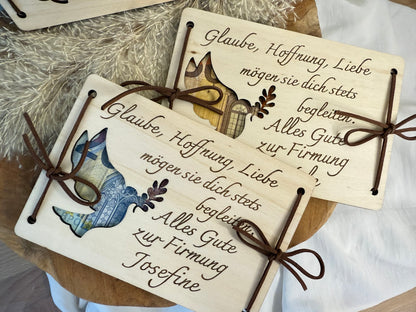 Glaube, Hoffnung, Liebe
mögen sie dich stets
begleiten.
Alles Gute
zur Firmung
Glaube, Hoffnung, Liebe
mögen sie dich stets
begleiten.
Alles Gute
zur Firmung
Josefine